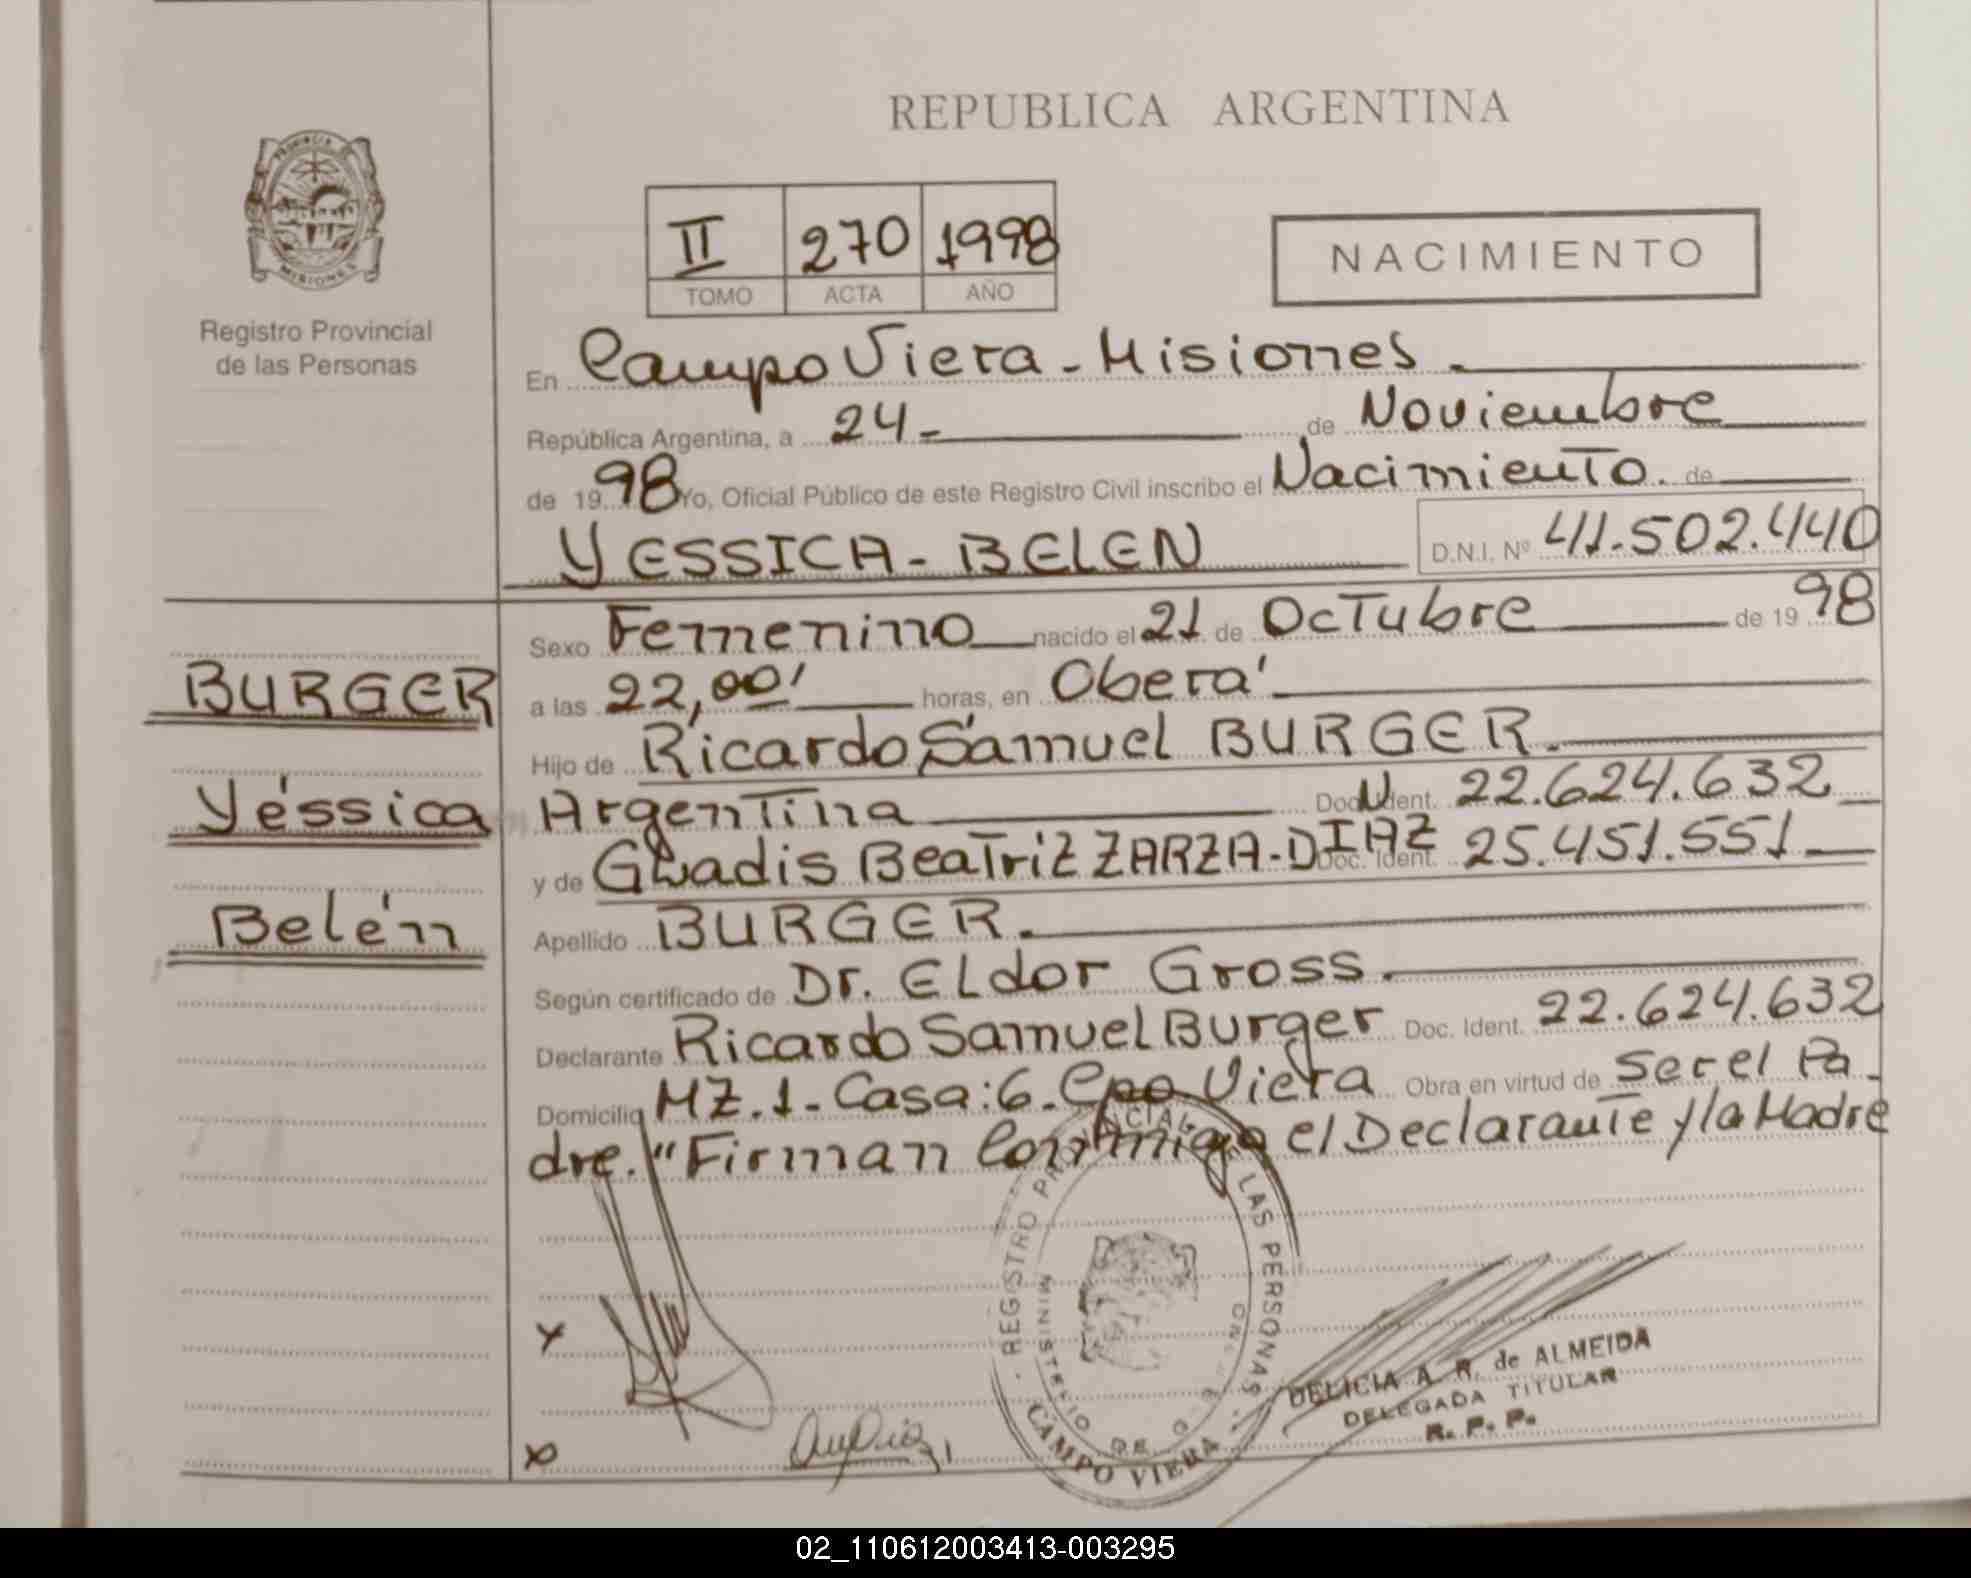 REPUBLICA ARGENTINA
PROVINCIA DE
MISIONES
Registro Provincial
de las Personas
II 270 1998
TOMO ACTA AÑO
NACIMIENTO
En Campo Viera - Misiones.
República Argentina, a 24- de Noviembre
de 1998 Yo, Oficial Público de este Registro Civil inscribo el Nacimiento. de
YESSICA - BELEN D.N.I. Nº 41.502.440
Sexo Femenino nacido el 21 de Octubre de 19 98
a las 22,00' horas, en Oberá
Hijo de Ricardo Samuel BURGER.
Argentina Doc. Ident. 22.624.632
y de Gladis Beatriz ZARZA-DIAZ Doc. Ident. 25.451.551
Apellido BURGER.
Según certificado de Dr. Eldor Gross.
Declarante Ricardo Samuel Burger Doc. Ident. 22.624.632
Domicilio MZ.1-Casa:6-Cpo Viera Obra en virtud de ser el Pa-
dre. "Firman Conmigo el Declarante y la Madre
BURGER
Yéssica
Belén
REGISTRO PROVINCIAL DE LAS PERSONAS
MINISTERIO DE
CAMPO VIERA
DELICIA A. R. de ALMEIDA
DELEGADA TITULAR
R. P. P.
02_110612003413-003295